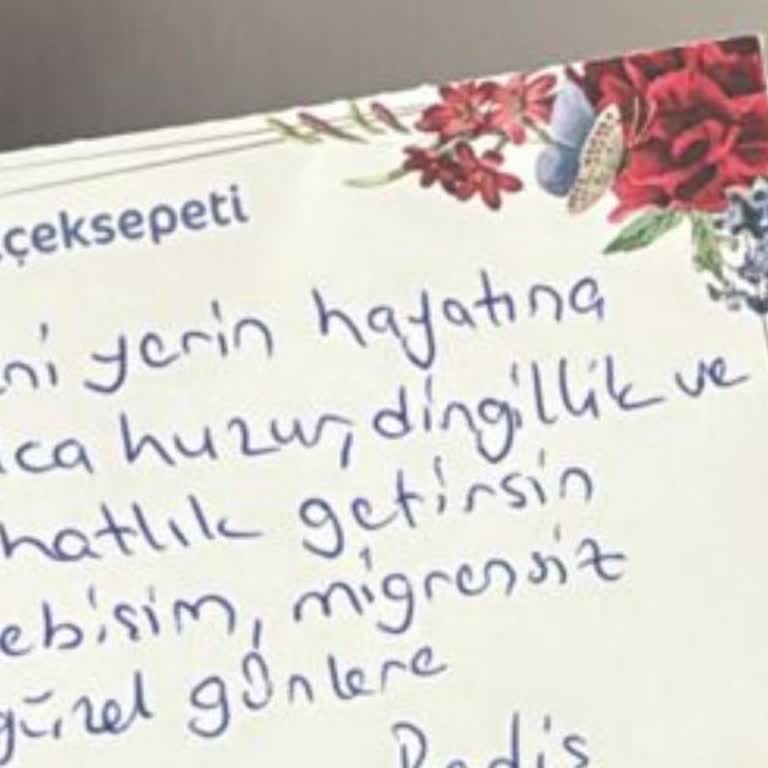 çeksepeti
ni yerin hayatına
ca huzur, dingillik ve
hatlık getirsin
ebişim, migrensiz
güzel günlere